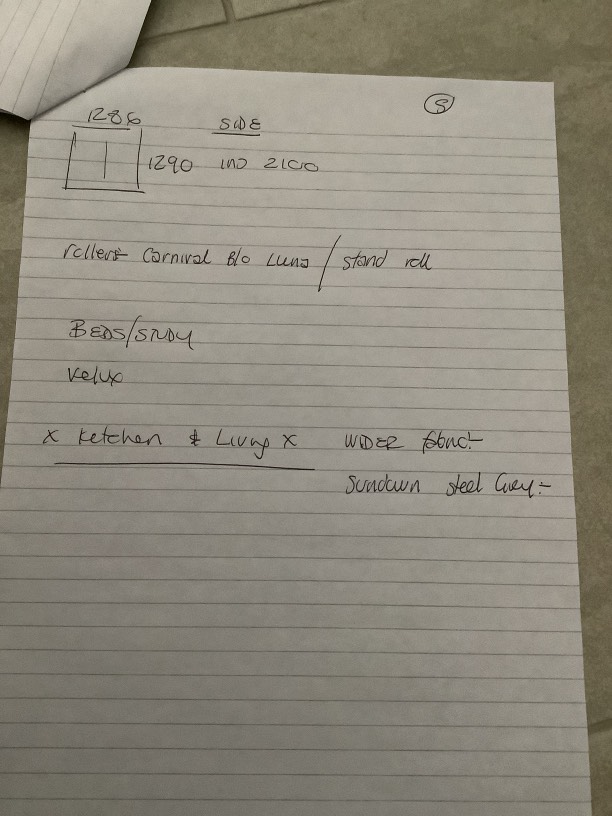 5
1286
SIDE
1290 IND 2100
rollers- Carnival B/O Luna / stand roll
BEDS/STUDY
Velux
x Ketchen & Living x WIDER fabric:-
Sundown steel Grey:-